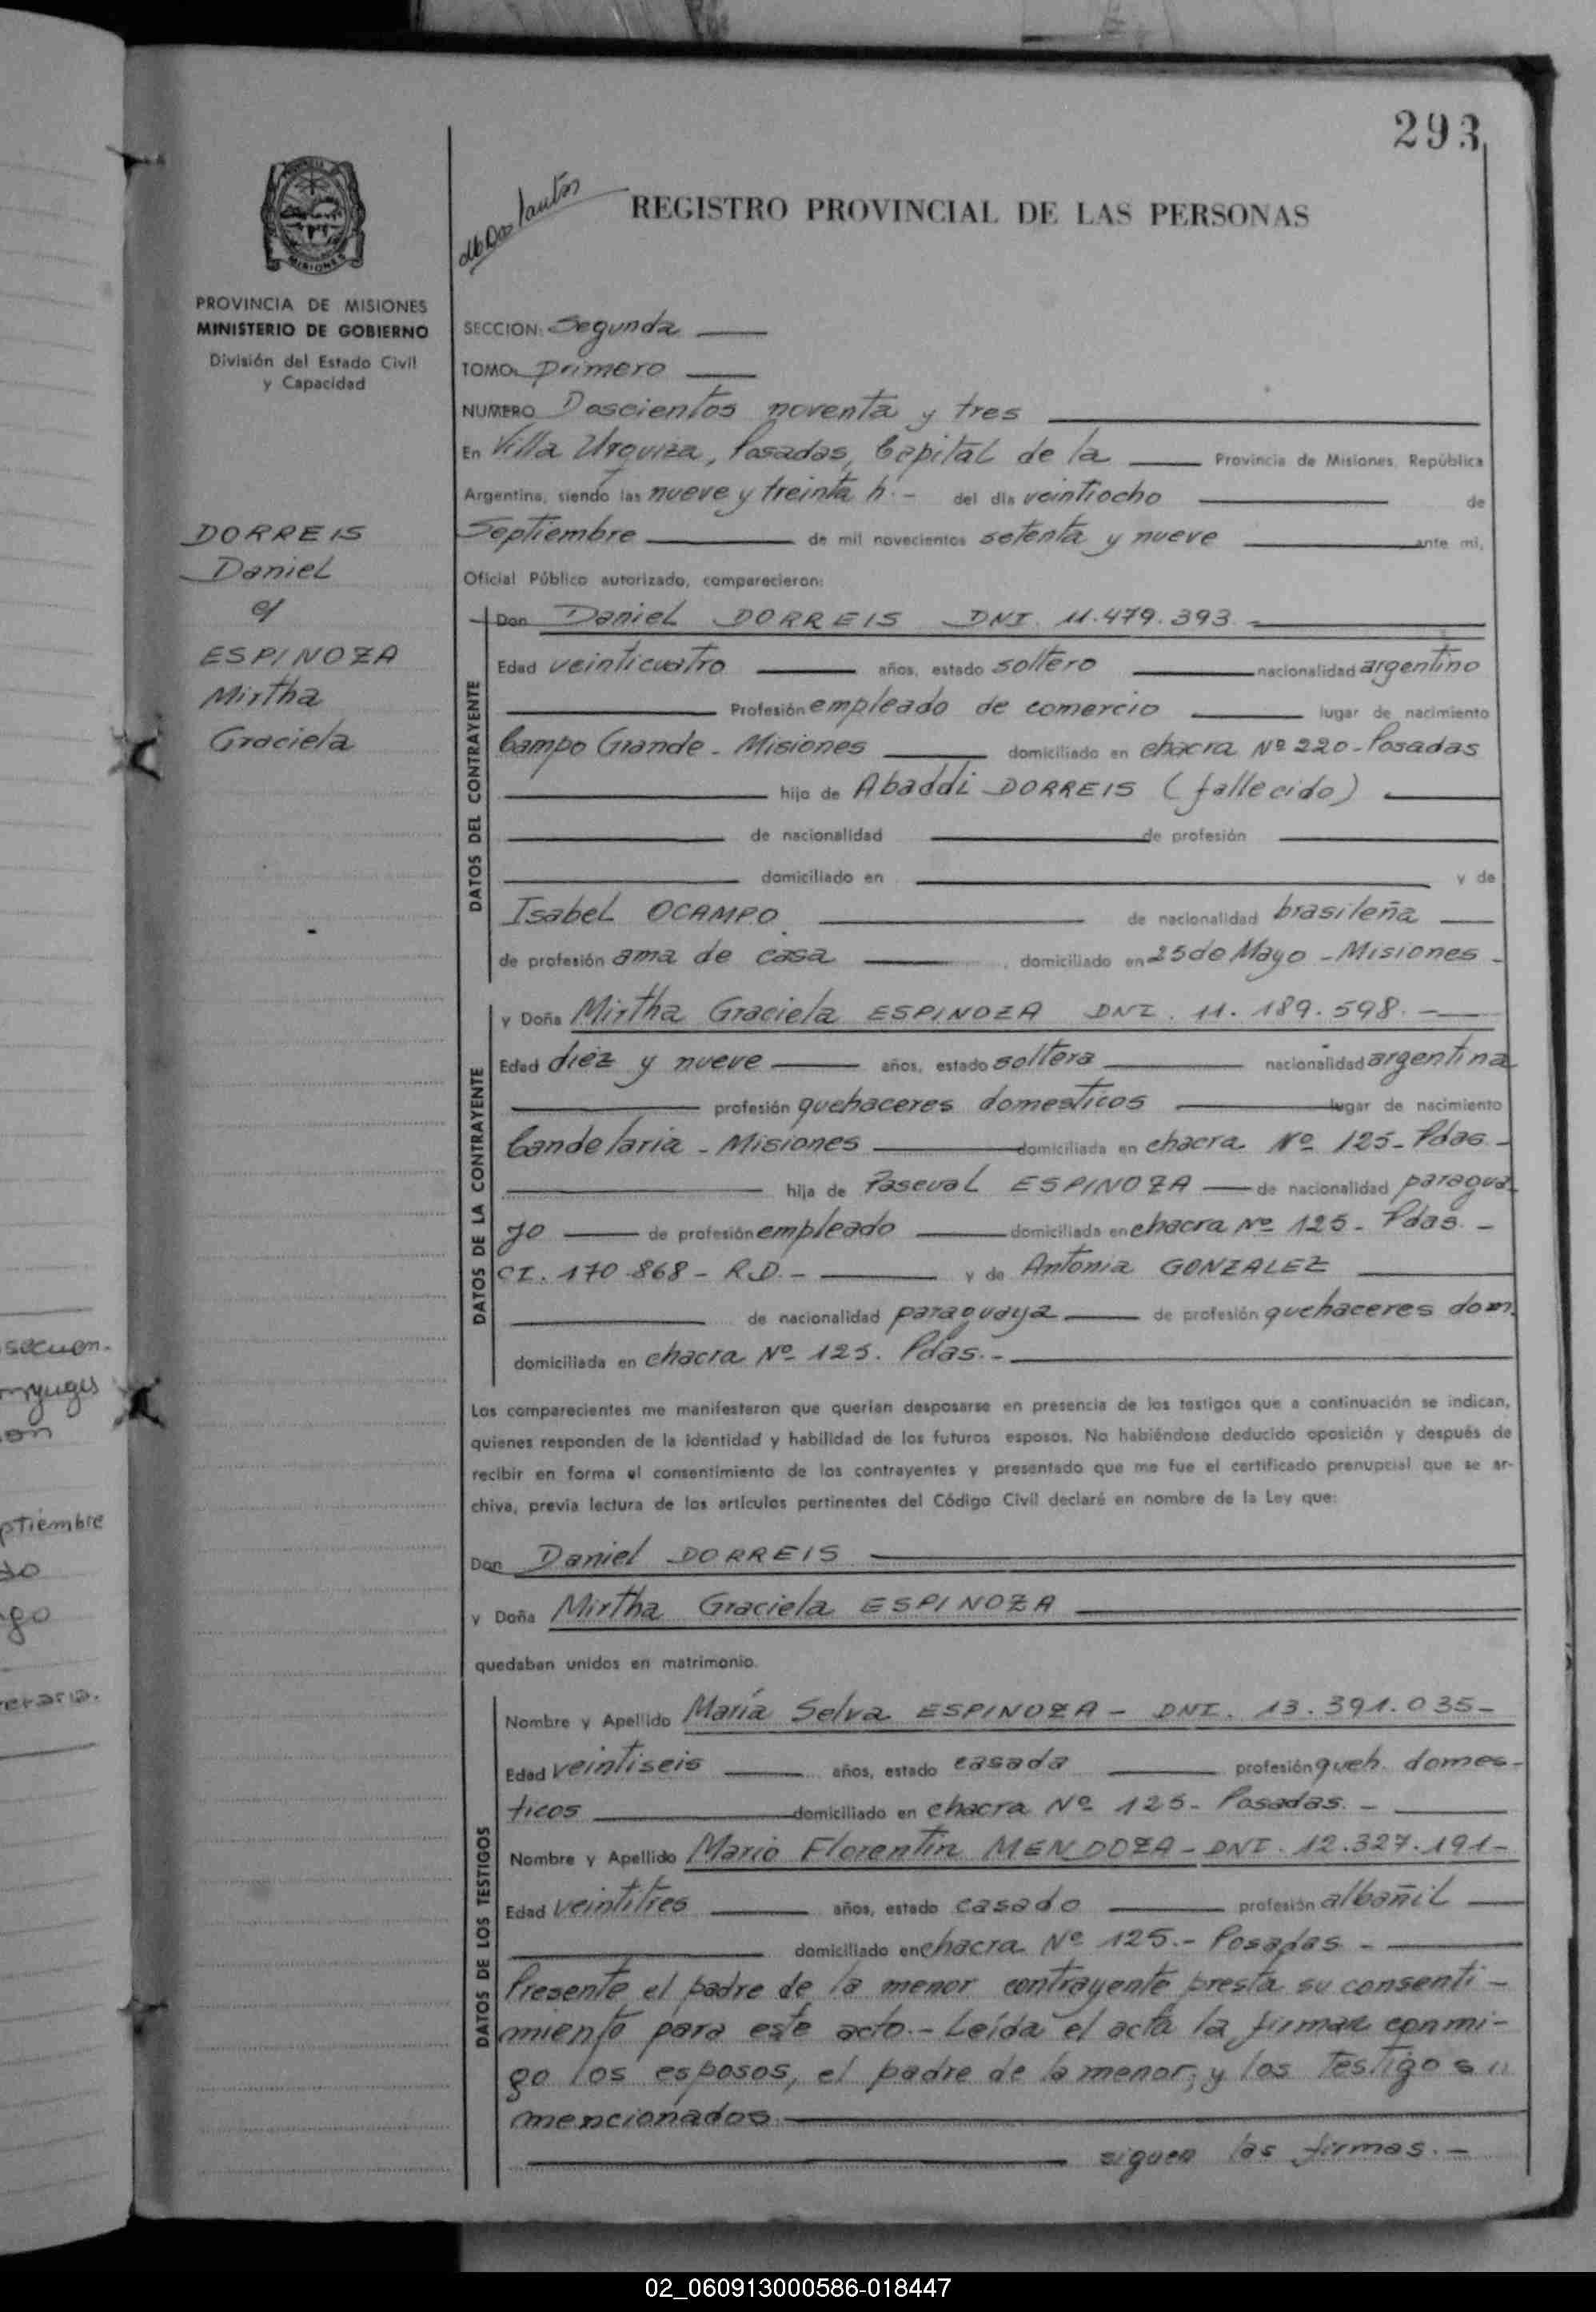 293
REGISTRO PROVINCIAL DE LAS PERSONAS
PROVINCIA DE MISIONES
MINISTERIO DE GOBIERNO
División del Estado Civil
y Capacidad
SECCION: Segunda
TOMO: primero
NUMERO Doscientos noventa y tres
En Villa Urquiza, Posadas, Capital de la Provincia de Misiones, República
Argentina, siendo las nueve y treinta h.- del día veintiocho de
Septiembre de mil novecientos setenta y nueve ante mi,
Oficial Público autorizado, comparecieron:
DORREIS
Daniel
c/
ESPINOZA
Mirtha
Graciela
DATOS DEL CONTRAYENTE
Don Daniel DORREIS DNI. 11.479.393.-
Edad veinticuatro años, estado soltero nacionalidad argentino
Profesión empleado de comercio lugar de nacimiento
Campo Grande - Misiones domiciliado en chacra Nº 220 - Posadas
hijo de Abaddi DORREIS (fallecido)
de nacionalidad de profesión
domiciliado en y de
Isabel OCAMPO de nacionalidad brasileña
de profesión ama de casa, domiciliado en 25 de Mayo - Misiones -
DATOS DE LA CONTRAYENTE
y Doña Mirtha Graciela ESPINOZA DNI. 11.189.598.-
Edad diez y nueve años, estado soltera nacionalidad argentina
profesión quehaceres domesticos lugar de nacimiento
Candelaria - Misiones domiciliada en chacra Nº 125 - Pdas -
hija de Pascual ESPINOZA de nacionalidad paragua
yo de profesión empleado domiciliada en chacra Nº 125 - Pdas. -
CI. 170.868 - R.D. - y de Antonia GONZALEZ
de nacionalidad paraguaya de profesión quehaceres dom.
domiciliada en chacra Nº 125. Pdas. -
Los comparecientes me manifestaron que querían desposarse en presencia de los testigos que a continuación se indican,
quienes responden de la identidad y habilidad de los futuros esposos. No habiéndose deducido oposición y después de
recibir en forma el consentimiento de los contrayentes y presentado que me fue el certificado prenupcial que se ar-
chiva, previa lectura de los artículos pertinentes del Código Civil declaré en nombre de la Ley que:
Don Daniel DORREIS
y Doña Mirtha Graciela ESPINOZA
quedaban unidos en matrimonio.
DATOS DE LOS TESTIGOS
Nombre y Apellido María Selva ESPINOZA - DNI. 13.391.035 -
Edad veintiseis años, estado casada profesión queh. domes-
ticos domiciliado en chacra Nº 125 - Posadas. -
Nombre y Apellido Mario Florentin MENDOZA - DNI. 12.327.191 -
Edad veintitres años, estado casado profesión albañil
domiciliado en chacra Nº 125. - Posadas -
Presente el padre de la menor contrayente presta su consenti-
miento para este acto. - Leída el acta la firman conmi-
go los esposos, el padre de la menor, y los testigos
mencionados
siguen las firmas. -
02_060913000586-018447